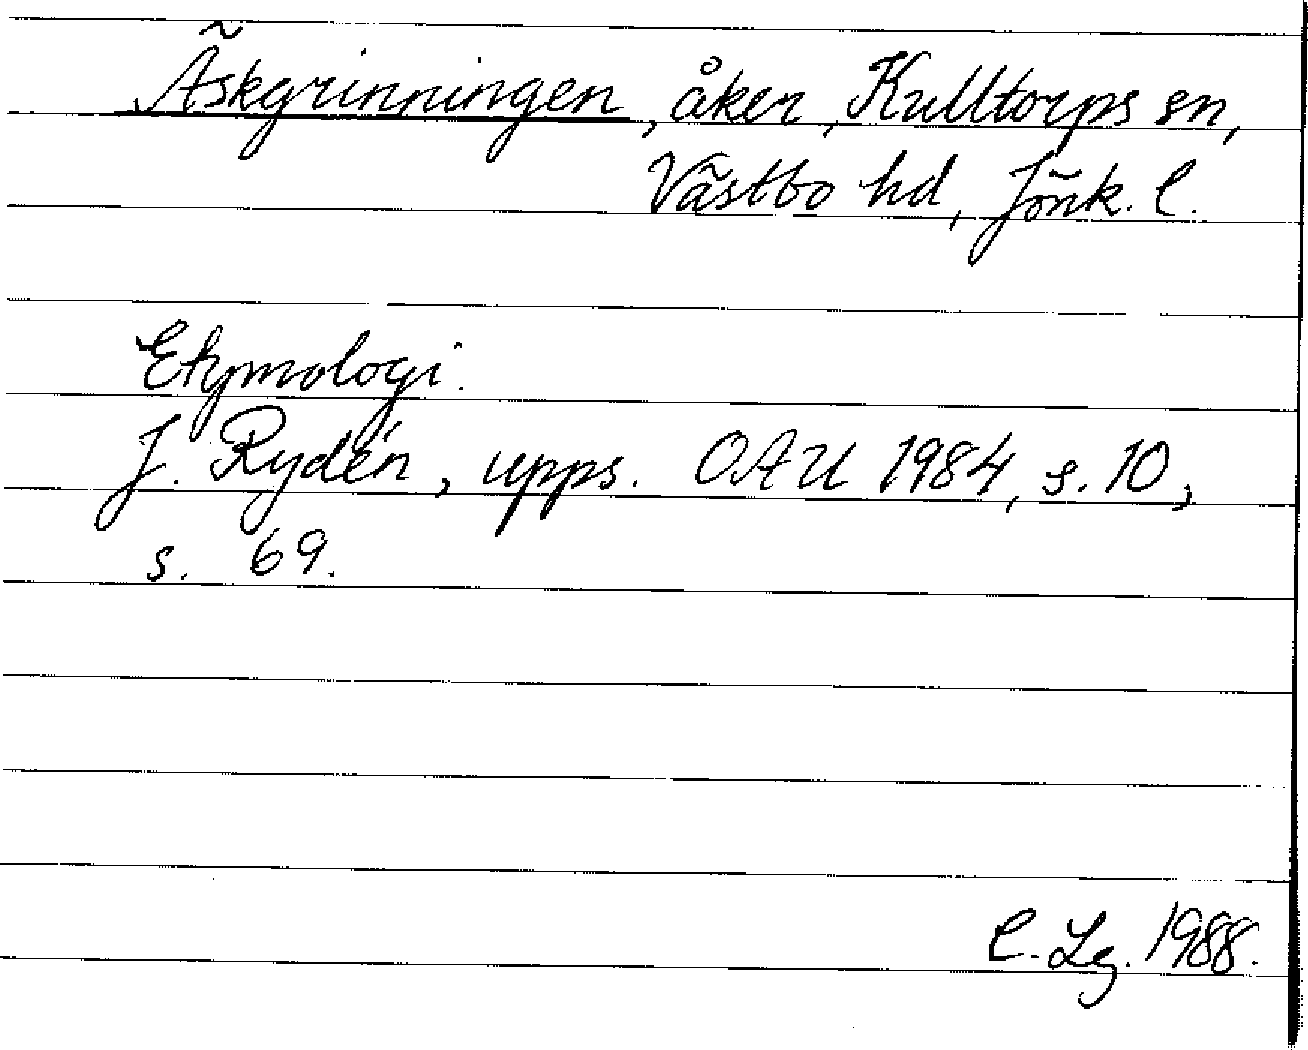 Äskgrinningen, åker, Kulltorps sn,
Västbo hd, Jönk. l.
Etymologi.
J. Rydén, upps. OAU 1984, s. 10,
s. 69.
C. Lg. 1988.